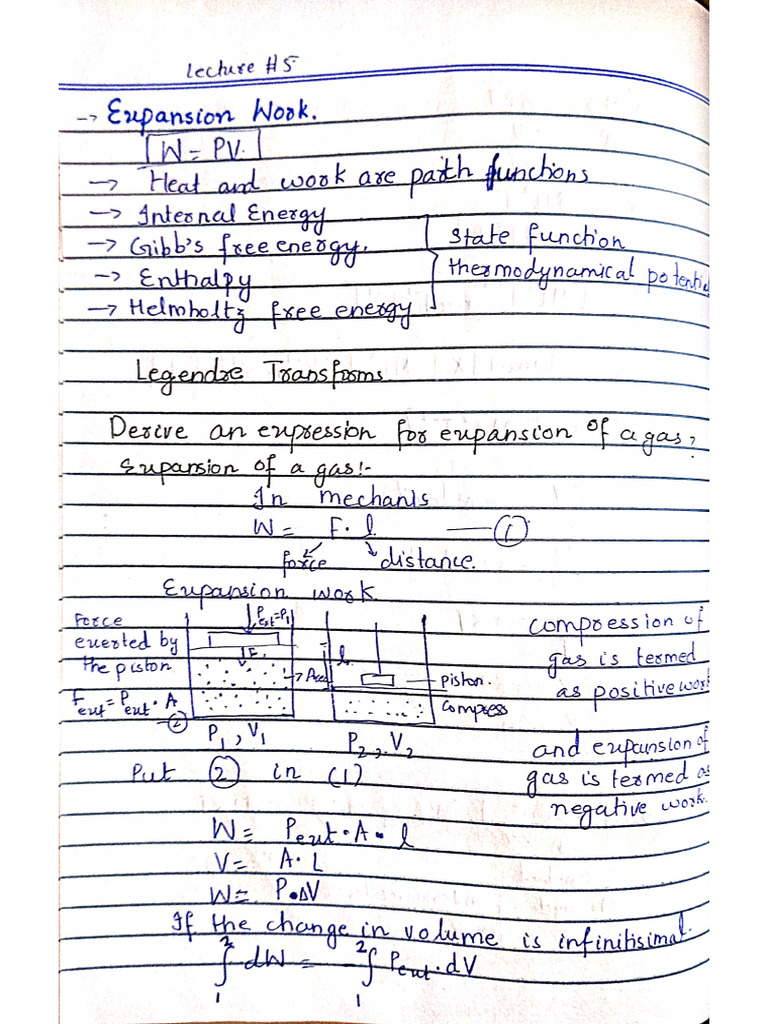 Lecture #5
→ Expansion Work.
W = PV.
→ Heat and work are path functions
→ Internal Energy
→ Gibb's free energy.
→ Enthalpy
→ Helmholtz free energy
State function
thermodynamical potential
Legendre Transforms.
Derive an expression for expansion of a gas?
Expansion of a gas:-
In mechanis
W = F · l ①
force distance.
Expansion work
Force
exerted by
the piston
F ext = P ext · A
②
P ext = P1
F
l
piston.
compress
P1, V1
P2, V2
compression of
gas is termed
as positive work
and expansion of
gas is termed as
negative work.
Put ② in (1)
W = P ext · A · l
V = A · L
W = P · ΔV
If the change in volume is infinitisimal.
∫₁² dW = -∫₁² P ext · dV